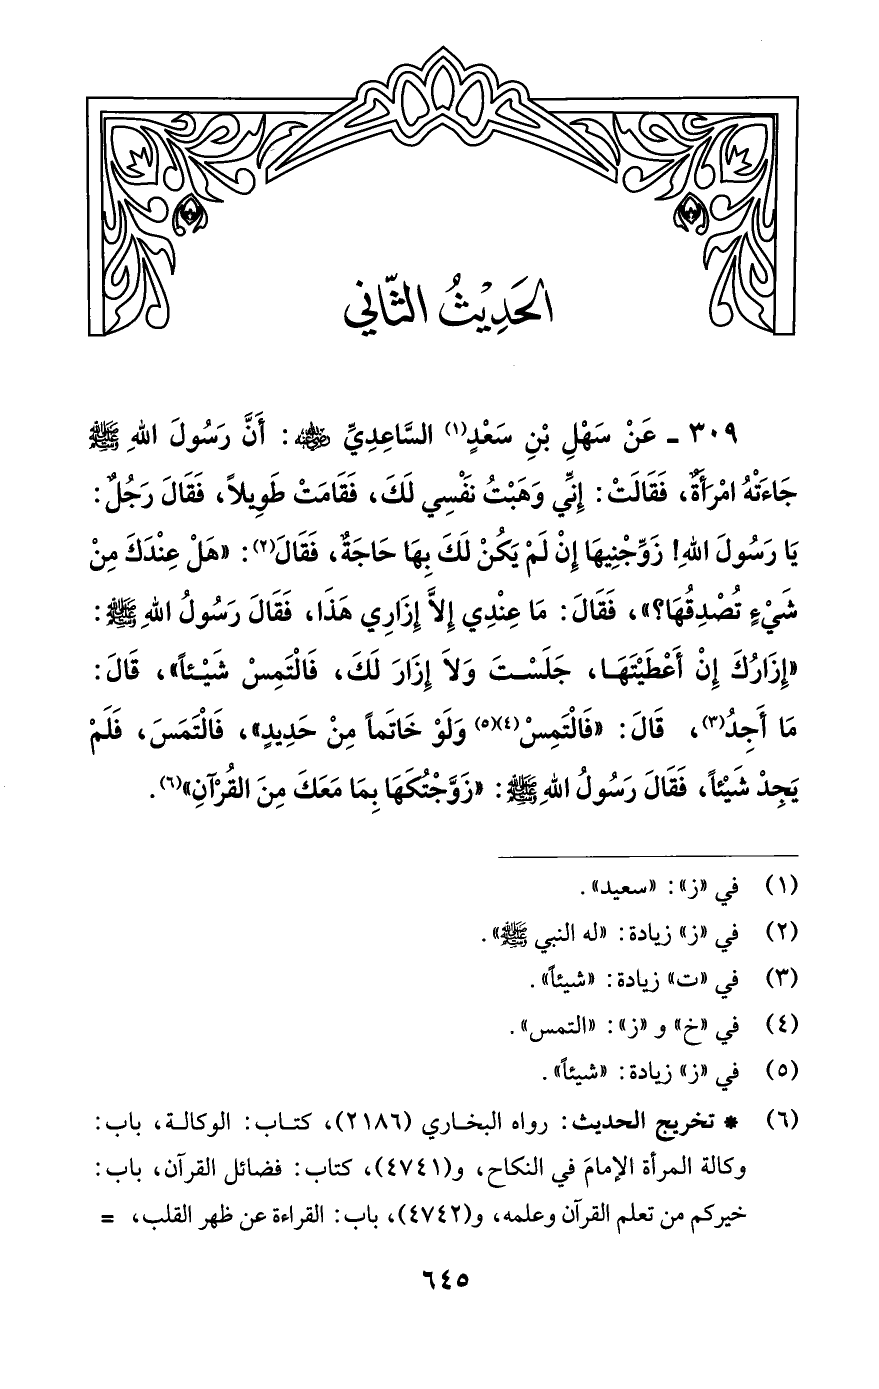 الحَدِيْثُ الثَّانِي
٣٠٩ ـ عَنْ سَهْلِ بْنِ سَعْدٍ(١) السَّاعِدِيِّ ﵁: أَنَّ رَسُولَ اللهِ ﷺ
جَاءَتْهُ امْرَأَةٌ، فَقَالَتْ: إِنِّي وَهَبْتُ نَفْسِي لَكَ، فَقَامَتْ طَوِيلاً، فَقَالَ رَجُلٌ:
يَا رَسُولَ اللهِ! زَوِّجْنِيهَا إِنْ لَمْ يَكُنْ لَكَ بِهَا حَاجَةٌ، فَقَالَ(٢): «هَلْ عِنْدَكَ مِنْ
شَيْءٍ تُصْدِقُهَا؟»، فَقَالَ: مَا عِنْدِي إِلاَّ إِزَارِي هَذَا، فَقَالَ رَسُولُ اللهِ ﷺ:
«إِزَارُكَ إِنْ أَعْطَيْتَهَا، جَلَسْتَ وَلاَ إِزَارَ لَكَ، فَالْتَمِسْ شَيْئاً»، قَالَ:
مَا أَجِدُ(٣)، قَالَ: «فَالْتَمِسْ(٤)(٥) وَلَوْ خَاتَماً مِنْ حَدِيدٍ»، فَالْتَمَسَ، فَلَمْ
يَجِدْ شَيْئاً، فَقَالَ رَسُولُ اللهِ ﷺ: «زَوَّجْتُكَهَا بِمَا مَعَكَ مِنَ القُرْآنِ»(٦).
(١) في «ز»: «سعيد».
(٢) في «ز» زيادة: «له النبي ﷺ».
(٣) في «ت» زيادة: «شيئاً».
(٤) في «خ» و «ز»: «التمس».
(٥) في «ز» زيادة: «شيئاً».
(٦) * تخريج الحديث: رواه البخاري (٢١٨٦)، كتاب: الوكالة، باب:
وكالة المرأة الإمامَ في النكاح، و(٤٧٤١)، كتاب: فضائل القرآن، باب:
خيركم من تعلم القرآن وعلمه، و(٤٧٤٢)، باب: القراءة عن ظهر القلب، =
٦٤٥